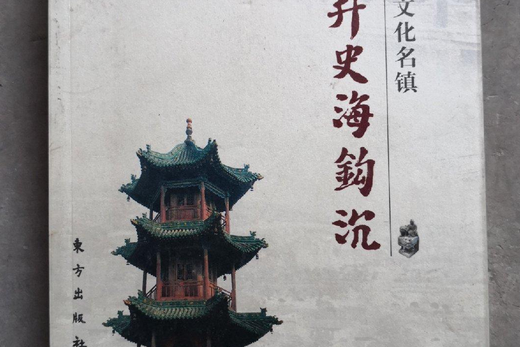 文化名镇
升史海鈎沉
東方出版社